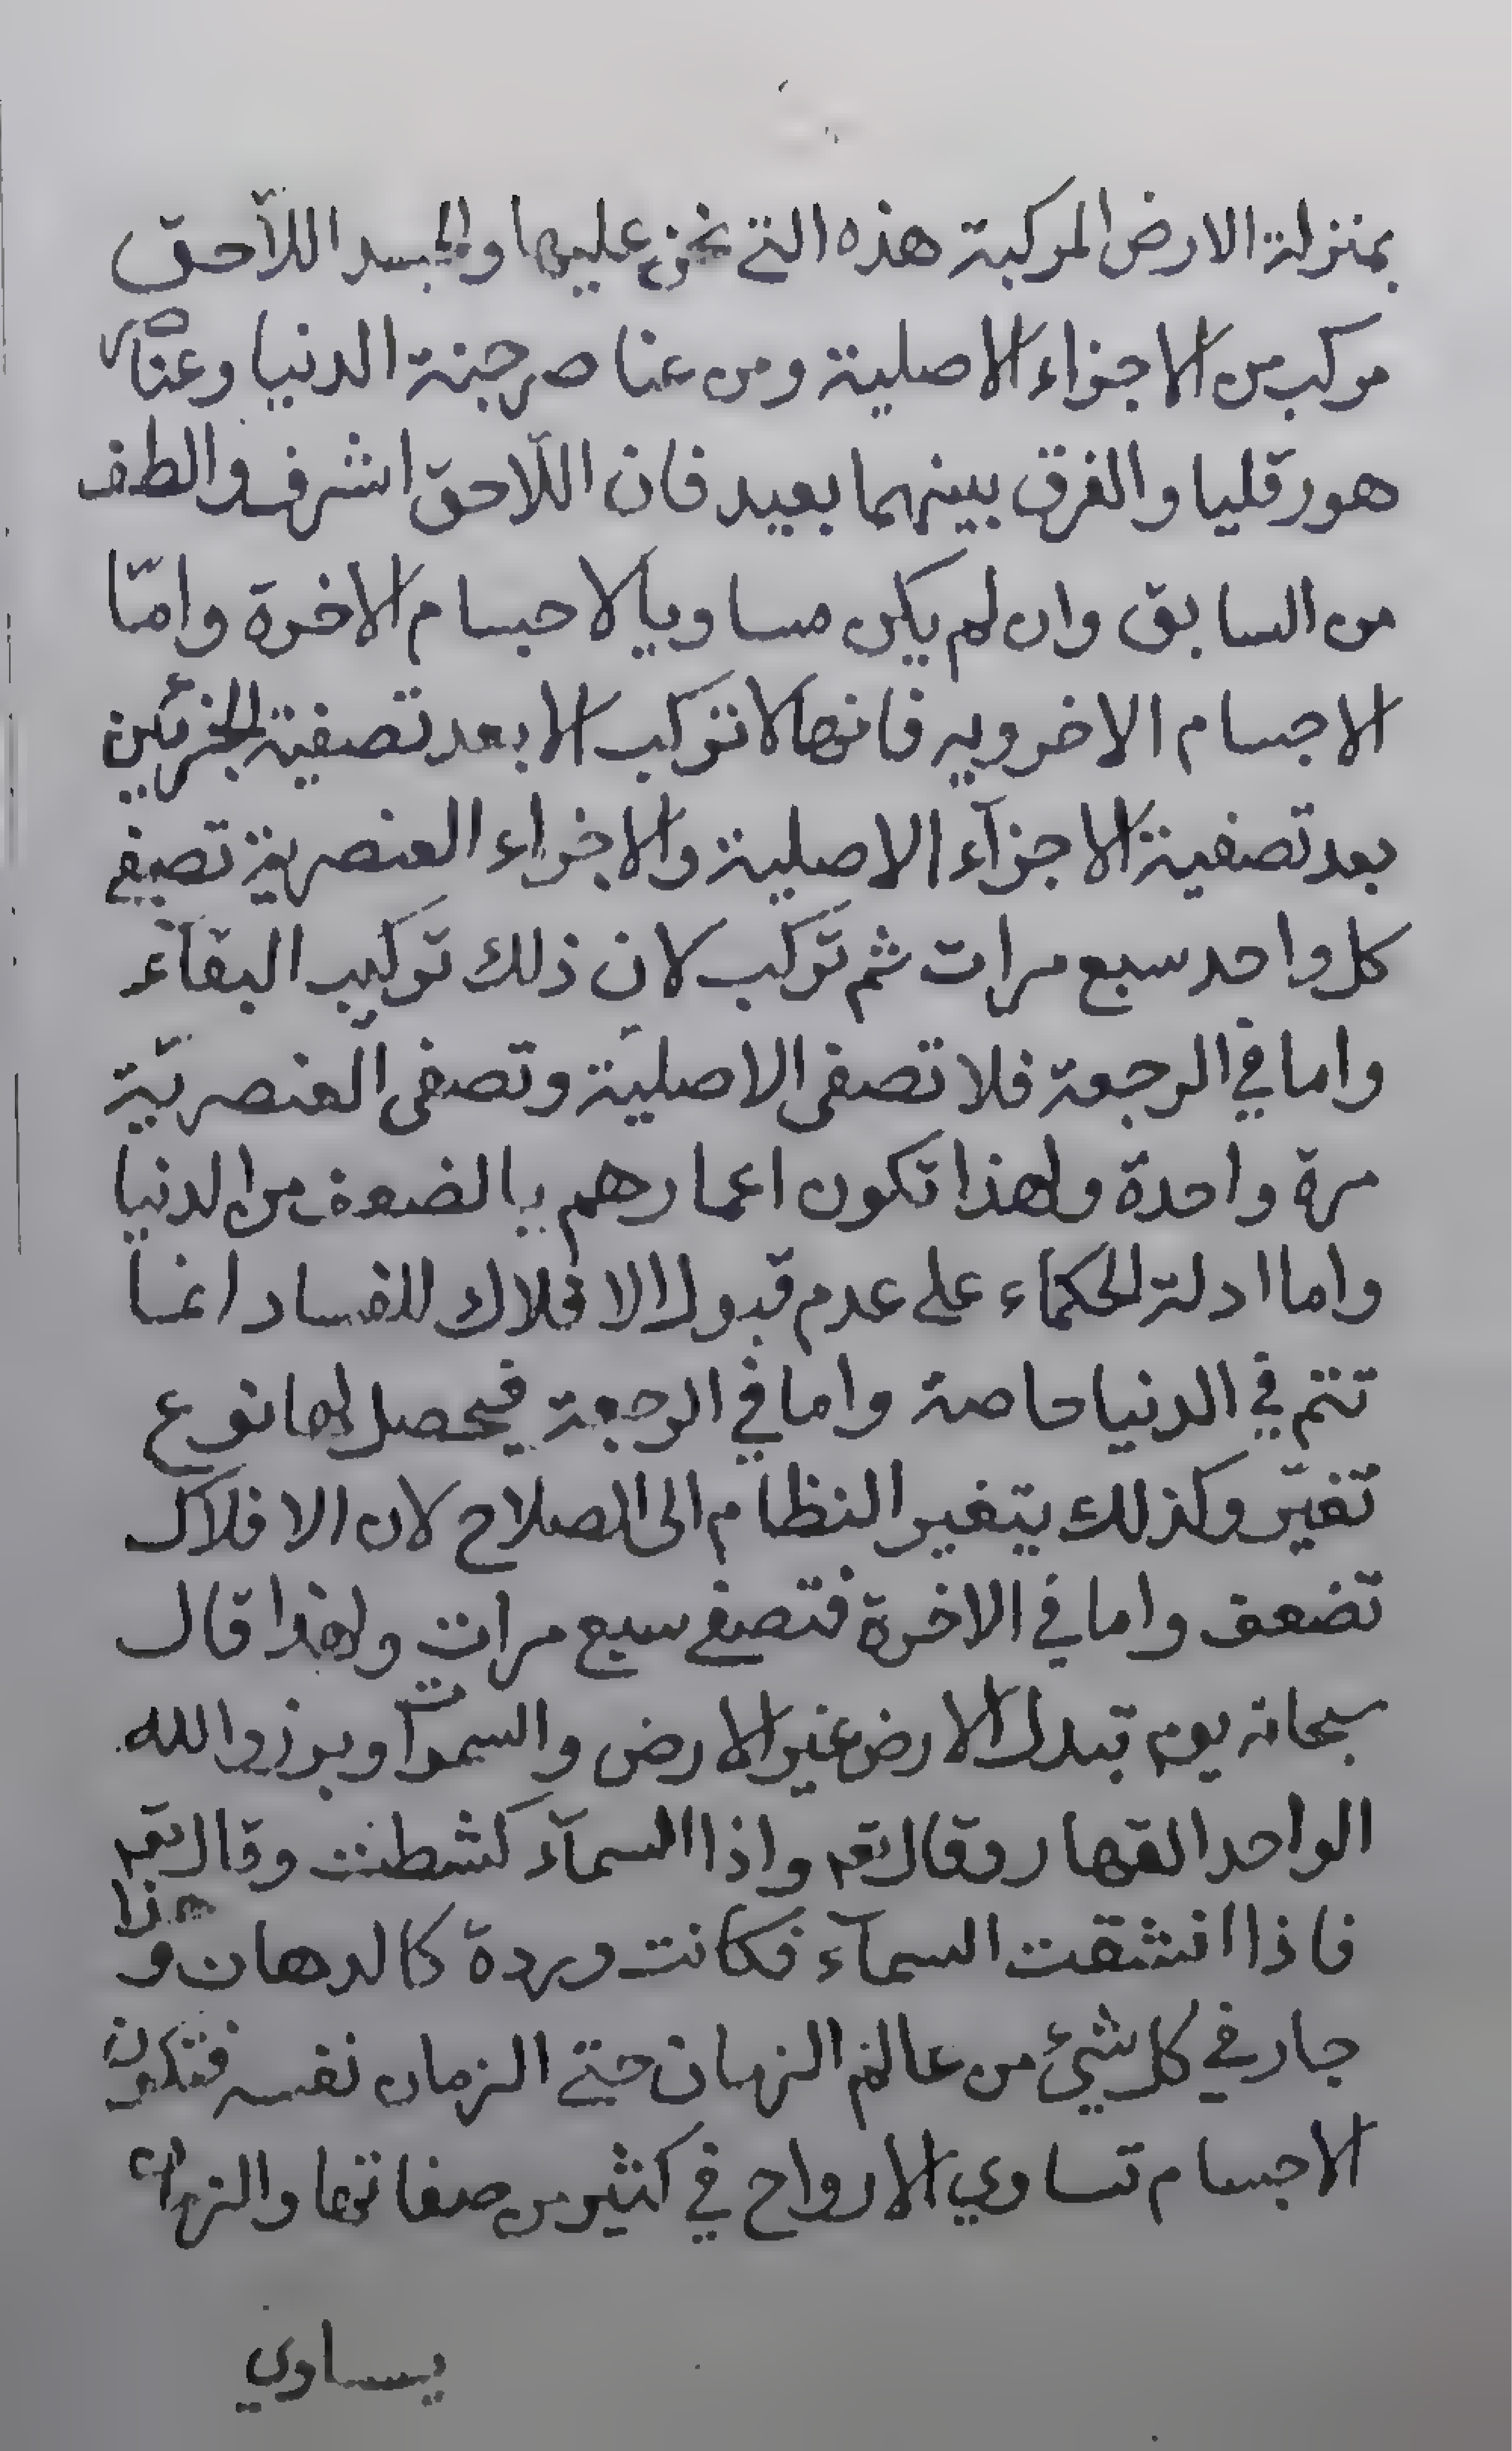 بمنزلة الارض المركبة هذه التي نحن عليها والجسد اللاّحق
مركب من الاجزاء الاصلية ومن عناصر جنة الدنيا وعناصر
هورقليا والفرق بينهما بعيد فان اللّاحق اشرف والطف
من السابق وان لم يكن مساويا لاجسام الاخرة وامّا
الاجسام الاخرويه فانها لا تركب الا بعد تصفية الجزئين
بعد تصفية الاجزآء الاصلية والاجزاء العنصرية تصفى
كل واحد سبع مرات ثم تركب لان ذلك تركيب البقآء
واما في الرجعة فلا تصفى الاصلية وتصفى العنصريّة
مرة واحدة ولهذا تكون اعمارهم بالضعف من الدنيا
واما ادلة الحكماء على عدم قبول الافلاك للفساد انما
تتم في الدنيا خاصة واما في الرجعة فيحصل لها نوع
تغيّر وكذلك يتغير النظام الى الصلاح لان الافلاك
تضعف واما في الاخرة فتصفى سبع مرات ولهذا قال
سبحانه يوم تبدل الارض غير الارض والسموات وبرزوا لله
الواحد القهار وقال تعه واذا السمآء كشطت وقال تعه
فاذا انشقت السمآء فكانت وردة كالدهان وهذا
جار في كل شئ من عالم الزمان حتى الزمان نفسه فتكون
الاجسام تساوي الارواح في كثير من صفاتها والزمان
يساوي